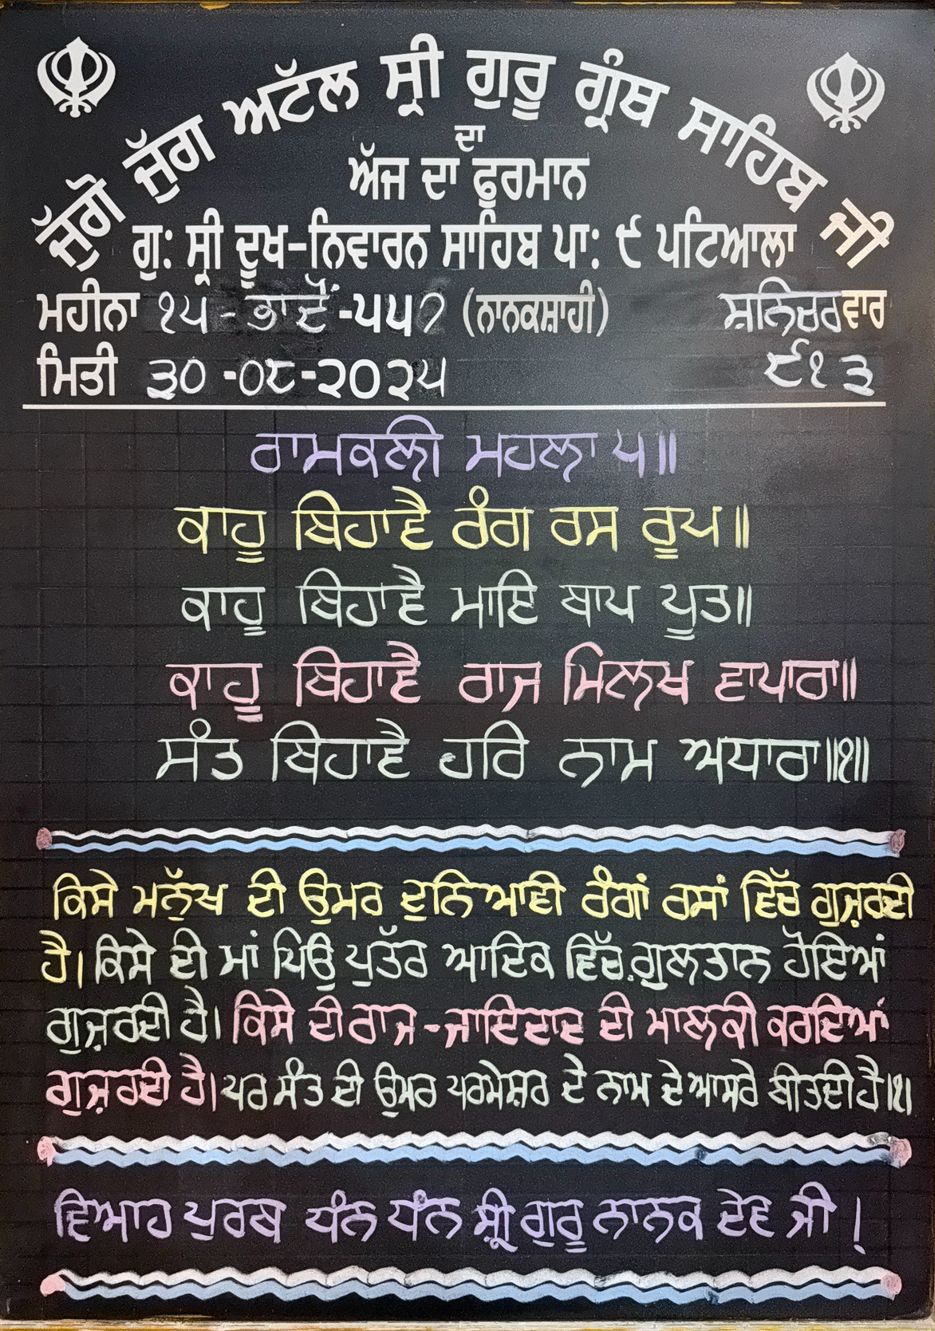 ਜੁੱਗੋ ਜੁੱਗ ਅਟੱਲ ਸ੍ਰੀ ਗੁਰੂ ਗ੍ਰੰਥ ਸਾਹਿਬ ਜੀ
ਦਾ
ਅੱਜ ਦਾ ਫੁਰਮਾਨ
ਗੁ: ਸ੍ਰੀ ਦੂਖ-ਨਿਵਾਰਨ ਸਾਹਿਬ ਪਾ: ੯ ਪਟਿਆਲਾ
ਮਹੀਨਾ ੧੫ - ਭਾਦੋਂ -੫੫੭ (ਨਾਨਕਸ਼ਾਹੀ) ਸ਼ਨਿਚਰਵਾਰ
ਮਿਤੀ ੩੦ -੦੮-੨੦੨੫ ੯੧੩
ਰਾਮਕਲੀ ਮਹਲਾ ੫॥
ਕਾਹੂ ਬਿਹਾਵੈ ਰੰਗ ਰਸ ਰੂਪ॥
ਕਾਹੂ ਬਿਹਾਵੈ ਮਾਇ ਬਾਪ ਪੂਤ॥
ਕਾਹੂ ਬਿਹਾਵੈ ਰਾਜ ਮਿਲਖ ਵਾਪਾਰਾ॥
ਸੰਤ ਬਿਹਾਵੈ ਹਰਿ ਨਾਮ ਅਧਾਰਾ॥੧॥
ਕਿਸੇ ਮਨੁੱਖ ਦੀ ਉਮਰ ਦੁਨਿਆਵੀ ਰੰਗਾਂ ਰਸਾਂ ਵਿੱਚ ਗੁਜ਼ਰਦੀ
ਹੈ। ਕਿਸੇ ਦੀ ਮਾਂ ਪਿਉ ਪੁਤੱਰ ਆਦਿਕ ਵਿੱਚ ਗੁਲਤਾਨ ਹੋਇਆਂ
ਗੁਜ਼ਰਦੀ ਹੈ। ਕਿਸੇ ਦੀ ਰਾਜ-ਜਾਇਦਾਦ ਦੀ ਮਾਲਕੀ ਕਰਦਿਆਂ
ਗੁਜ਼ਰਦੀ ਹੈ। ਪਰ ਸੰਤ ਦੀ ਉਮਰ ਪਰਮੇਸ਼ਰ ਦੇ ਨਾਮ ਦੇ ਆਸਰੇ ਬੀਤਦੀ ਹੈ।੧।
ਵਿਆਹ ਪੁਰਬ ਧੰਨ ਧੰਨ ਸ਼੍ਰੀ ਗੁਰੂ ਨਾਨਕ ਦੇਵ ਜੀ !